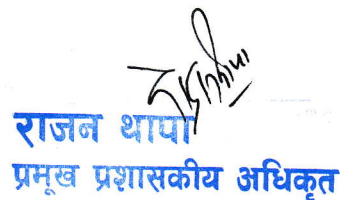 राजन थापा
प्रमूख प्रशासकीय अधिकृत